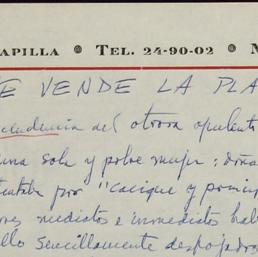 APILLA • TEL. 24-90-02 •
E VENDE LA PLA
del otrora opulent
una sola y pobre mujer: doña
por "cacique y princip
mediatos e inmediatos hab
llo sencillamente despojados